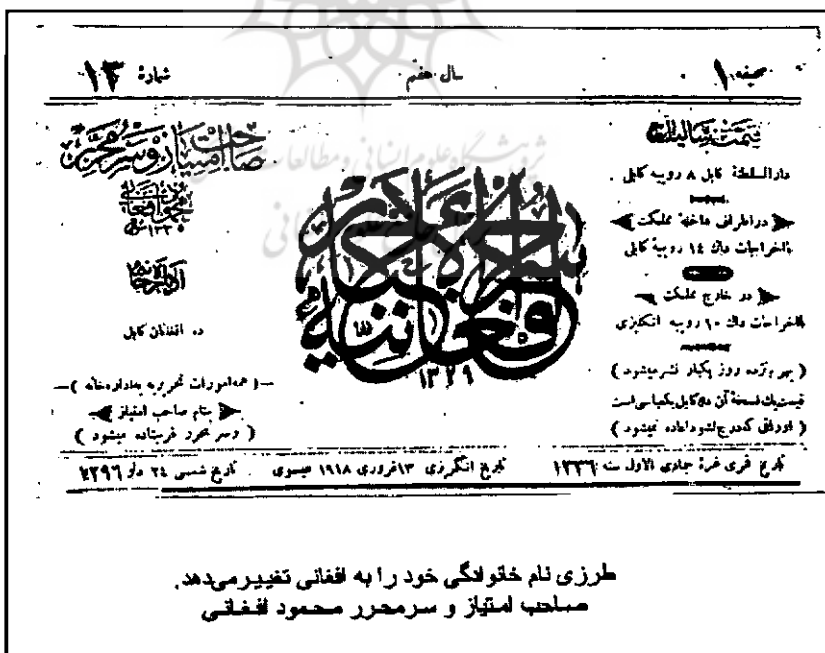 صحیفه ۱
سال هفتم
شمارهٔ ۱۳
قیمت سالیانه
دارالسلطنهٔ کابل ۸ روپیه کابلی
در اطراف داخلهٔ مملکت
بااخراجات داك ۱٤ روپیهٔ کابلی
در خارج مملکت
بااخراجات داك ۱۰ روپیه انگلیزی
( بهر پانزده روز یکبار نشر میشود )
قیمت یك نسخهٔ آن در کابل یکعباسی است
( اوراقی که درج نشود اعاده نمیشود )
سراج الاخبار
افغانیه
۱۳۲۹
صاحب امتیاز و سر محرر
محمود افغانی
۱۳۳۵
اداره خانه
ده افغانان کابل
—( همه امورات تحریریه به اداره خانه )—
بنام صاحب امتیاز
( و سر محرر فرستاده میشود )
تاریخ قمری غرهٔ جمادی الاول سنه ۱۳۳٦
تاریخ انگریزی ۱۳ فروری ۱۹۱۸ عیسوی
تاریخ شمسی ۲٤ دلو ۱۲۹٦
پژوهشگاه علوم انسانی و مطالعات
علوم انسانی
طرزی نام خانوادگی خود را به افغانی تغییر می‌دهد.
صاحب امتیاز و سرمحرر محمود افغانی